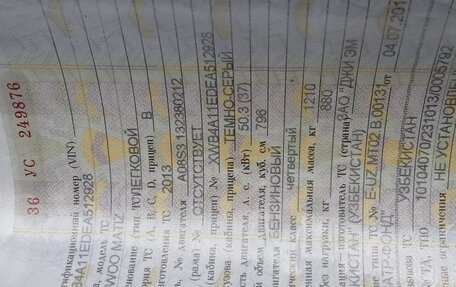 36 УС 249876
тификационный номер (VIN)
B4A11EDEA512928
а, модель ТС
WOO MATIZ
нование (тип ТС) ЛЕГКОВОЙ
ория ТС (A, B, C, D, прицеп) B
зготовления ТС 2013
ь, № двигателя A08S3 132380212
(рама) № ОТСУТСТВУЕТ
(кабина, прицеп) № XWB4A11EDEA512928
узова (кабины, прицепа) ТЕМНО-СЕРЫЙ
сть двигателя, л. с. (кВт) 50.3 (37)
й объем двигателя, куб. см 796
вигателя БЕНЗИНОВЫЙ
ический класс четвертый
нная максимальная масса, кг 1210
без нагрузки, кг 880
зация – изготовитель ТС (страна) ЗАО "ДЖИ ЭМ
КИСТАН" (УЗБЕКИСТАН)
ие типа ТС № E-UZ.MT02.B.00131 от 04.07.201
АТР-ФОНД"
вывоза ТС УЗБЕКИСТАН
ТД, ТПО 10104070/231013/0006792
ные ограничения НЕ УСТАНОВЛЕ